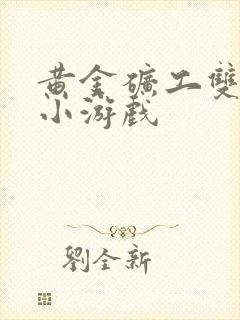 黄金礦工雙
小游戲
劉全新